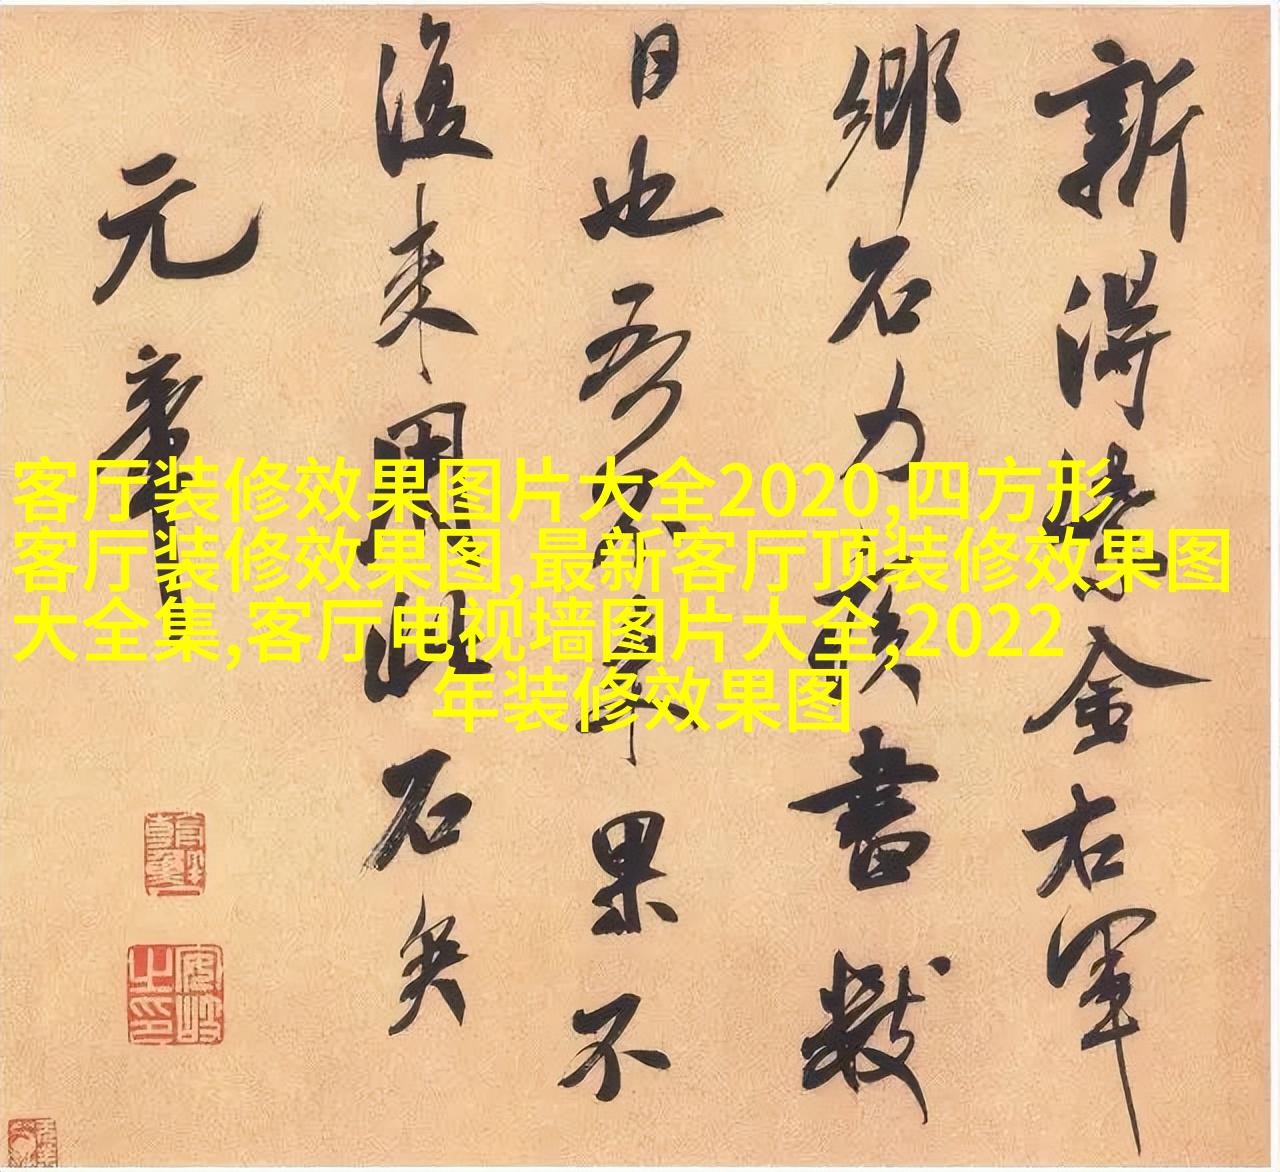 新得紫金右軍
鄉石力疾書數
日也吾不來果不
復來用此石矣
元章
客厅装修效果图片大全2020,四方形
客厅装修效果图,最新客厅顶装修效果图
大全集,客厅电视墙图片大全,2022
年装修效果图